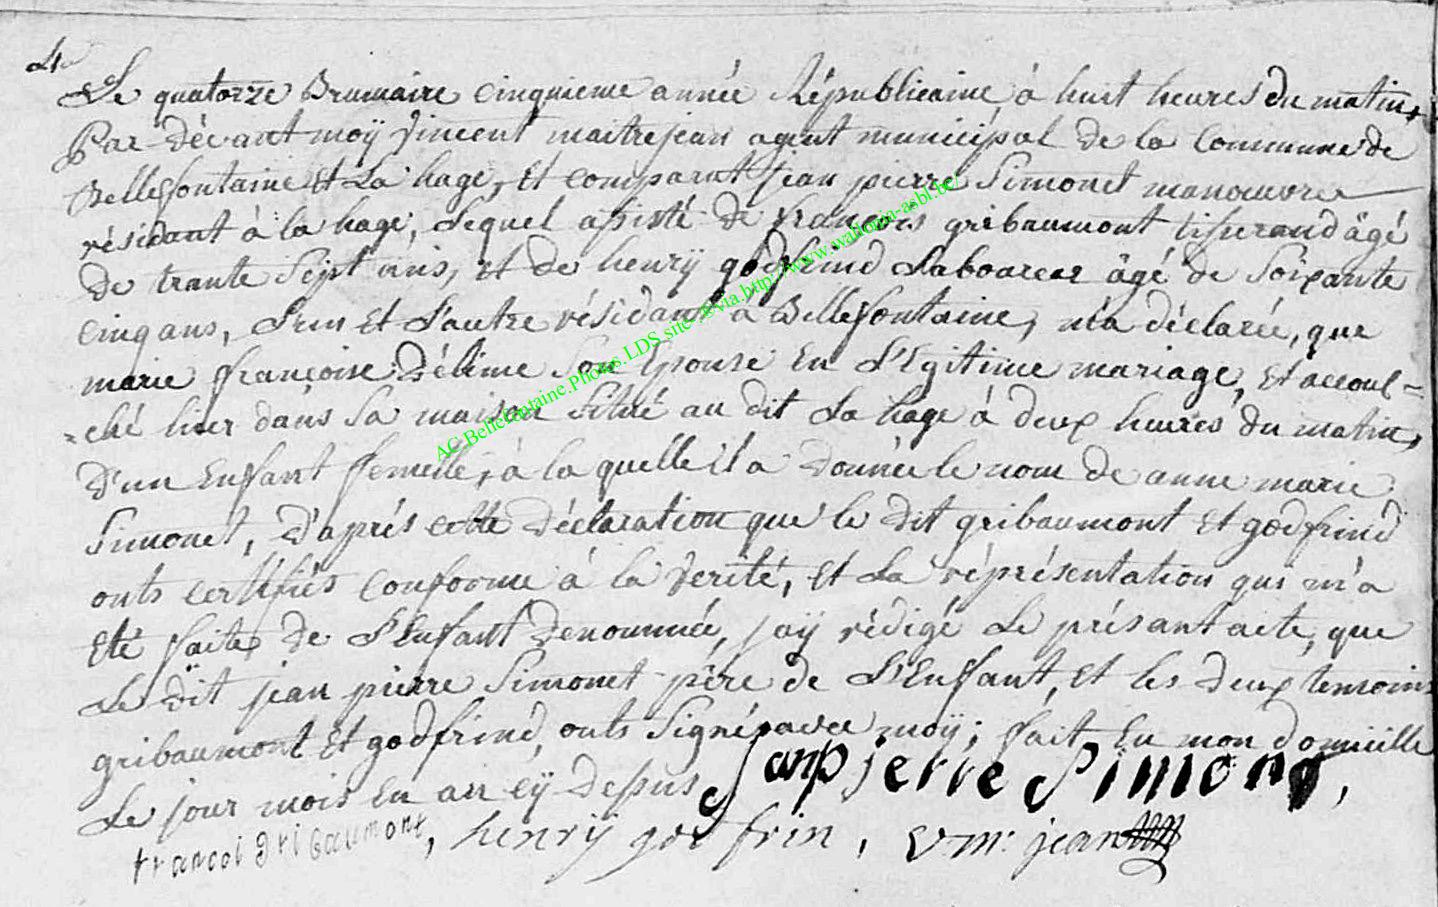 4e
Le quatorze Brumaire cinquieme année Républicaine à huit heures du matin,
Par-Dévant moÿ Vincent maitrejean agent municipal De la Commune de
Bellefontaine et La hage, et comparut jean pierre Simonet manœuvre
résidant à la hage, Lequel assisté de françois gribaumont tisserand âgé
De trante Sept ans, et de henrÿ godfrind Laboureur âgé de Soixante
cinq ans, L'un et L'autre résidant à Bellefontaine, m'a déclarée, que
marie françoise Son Epouse En L'Egitime mariage, Et accou-
=ché hier dans Sa maison Situé au dit La hage à deux heures du matin,
D'un Enfant femelle, à la quelle il a Donnée le nom De anne marie
Simonet, D'aprés cette Déclaration que le Dit gribaumont Et godfrind
onts certifiés conforme à la Verité, Et La réprésentation qui m'a
Eté faites De L'Enfant Denommée, jaÿ rédigé Le présant acte, que
Le Dit jean pierre Simonet pére de L'Enfant, Et les Deux temoins
gribaumont Et godfrind, onts Signés avec moÿ; fait En mon Domicille
Le jour mois En an eÿ Depus Janpjerre Simong,
francoi Gribaumont, henrÿ god frin, V m. jean
AC.Bellefontaine.Photos.LDS site .©via.http://www.wallonia-asbl.be/